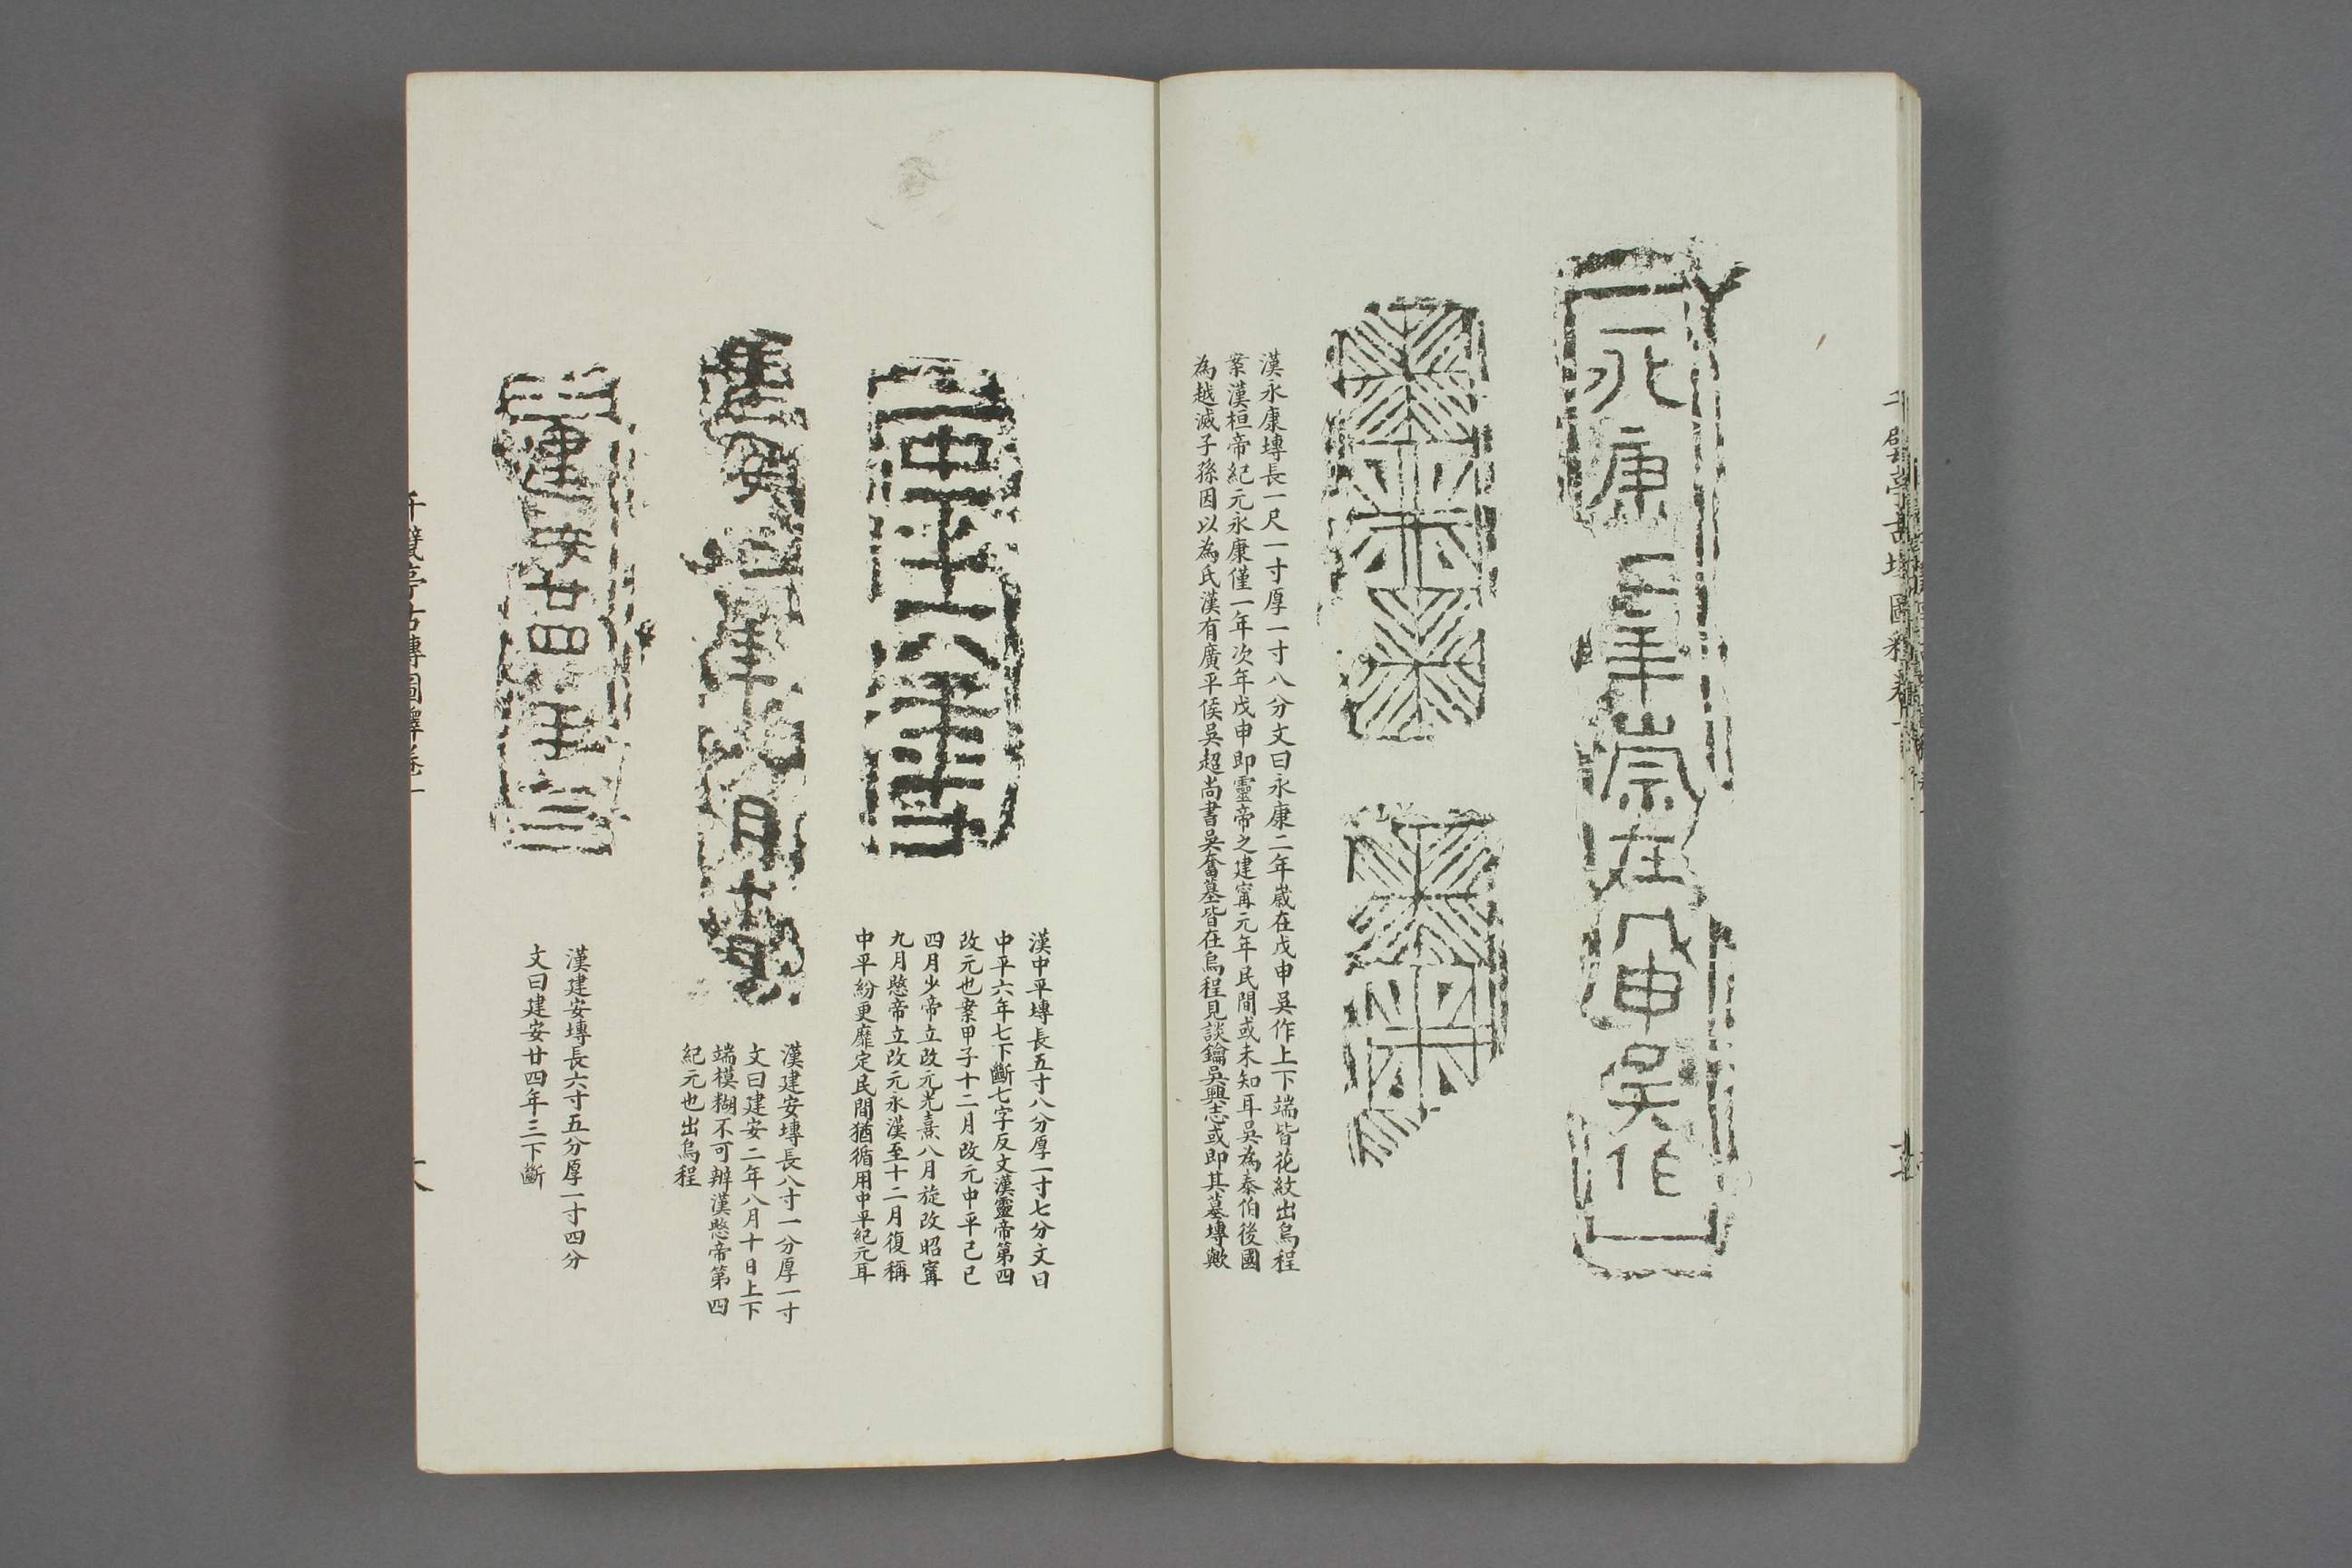 永康二年歲在戊申吳作
漢永康塼長一尺一寸厚一寸八分文曰永康二年歲在戊申吳作上下端皆花紋出烏程
案漢桓帝紀元永康僅一年次年戊申即靈帝之建寗元年民間或未知耳吳為泰伯後國
為越滅子孫因以為氏漢有廣平侯吳超尚書吳奮墓皆在烏程見談鑰吳興志或即其墓塼歟
中平六年七
漢中平塼長五寸八分厚一寸七分文曰
中平六年七下斷七字反文漢靈帝第四
改元也案甲子十二月改元中平己巳
四月少帝立改元光熹八月旋改昭寗
九月愍帝立改元永漢至十二月復稱
中平紛更靡定民間猶循用中平紀元耳
建安二年八月十日
漢建安塼長八寸一分厚一寸
文曰建安二年八月十日上下
端模糊不可辨漢愍帝第四
紀元也出烏程
建安廿四年三
漢建安塼長六寸五分厚一寸四分
文曰建安廿四年三下斷
千甓亭古塼圖釋卷一